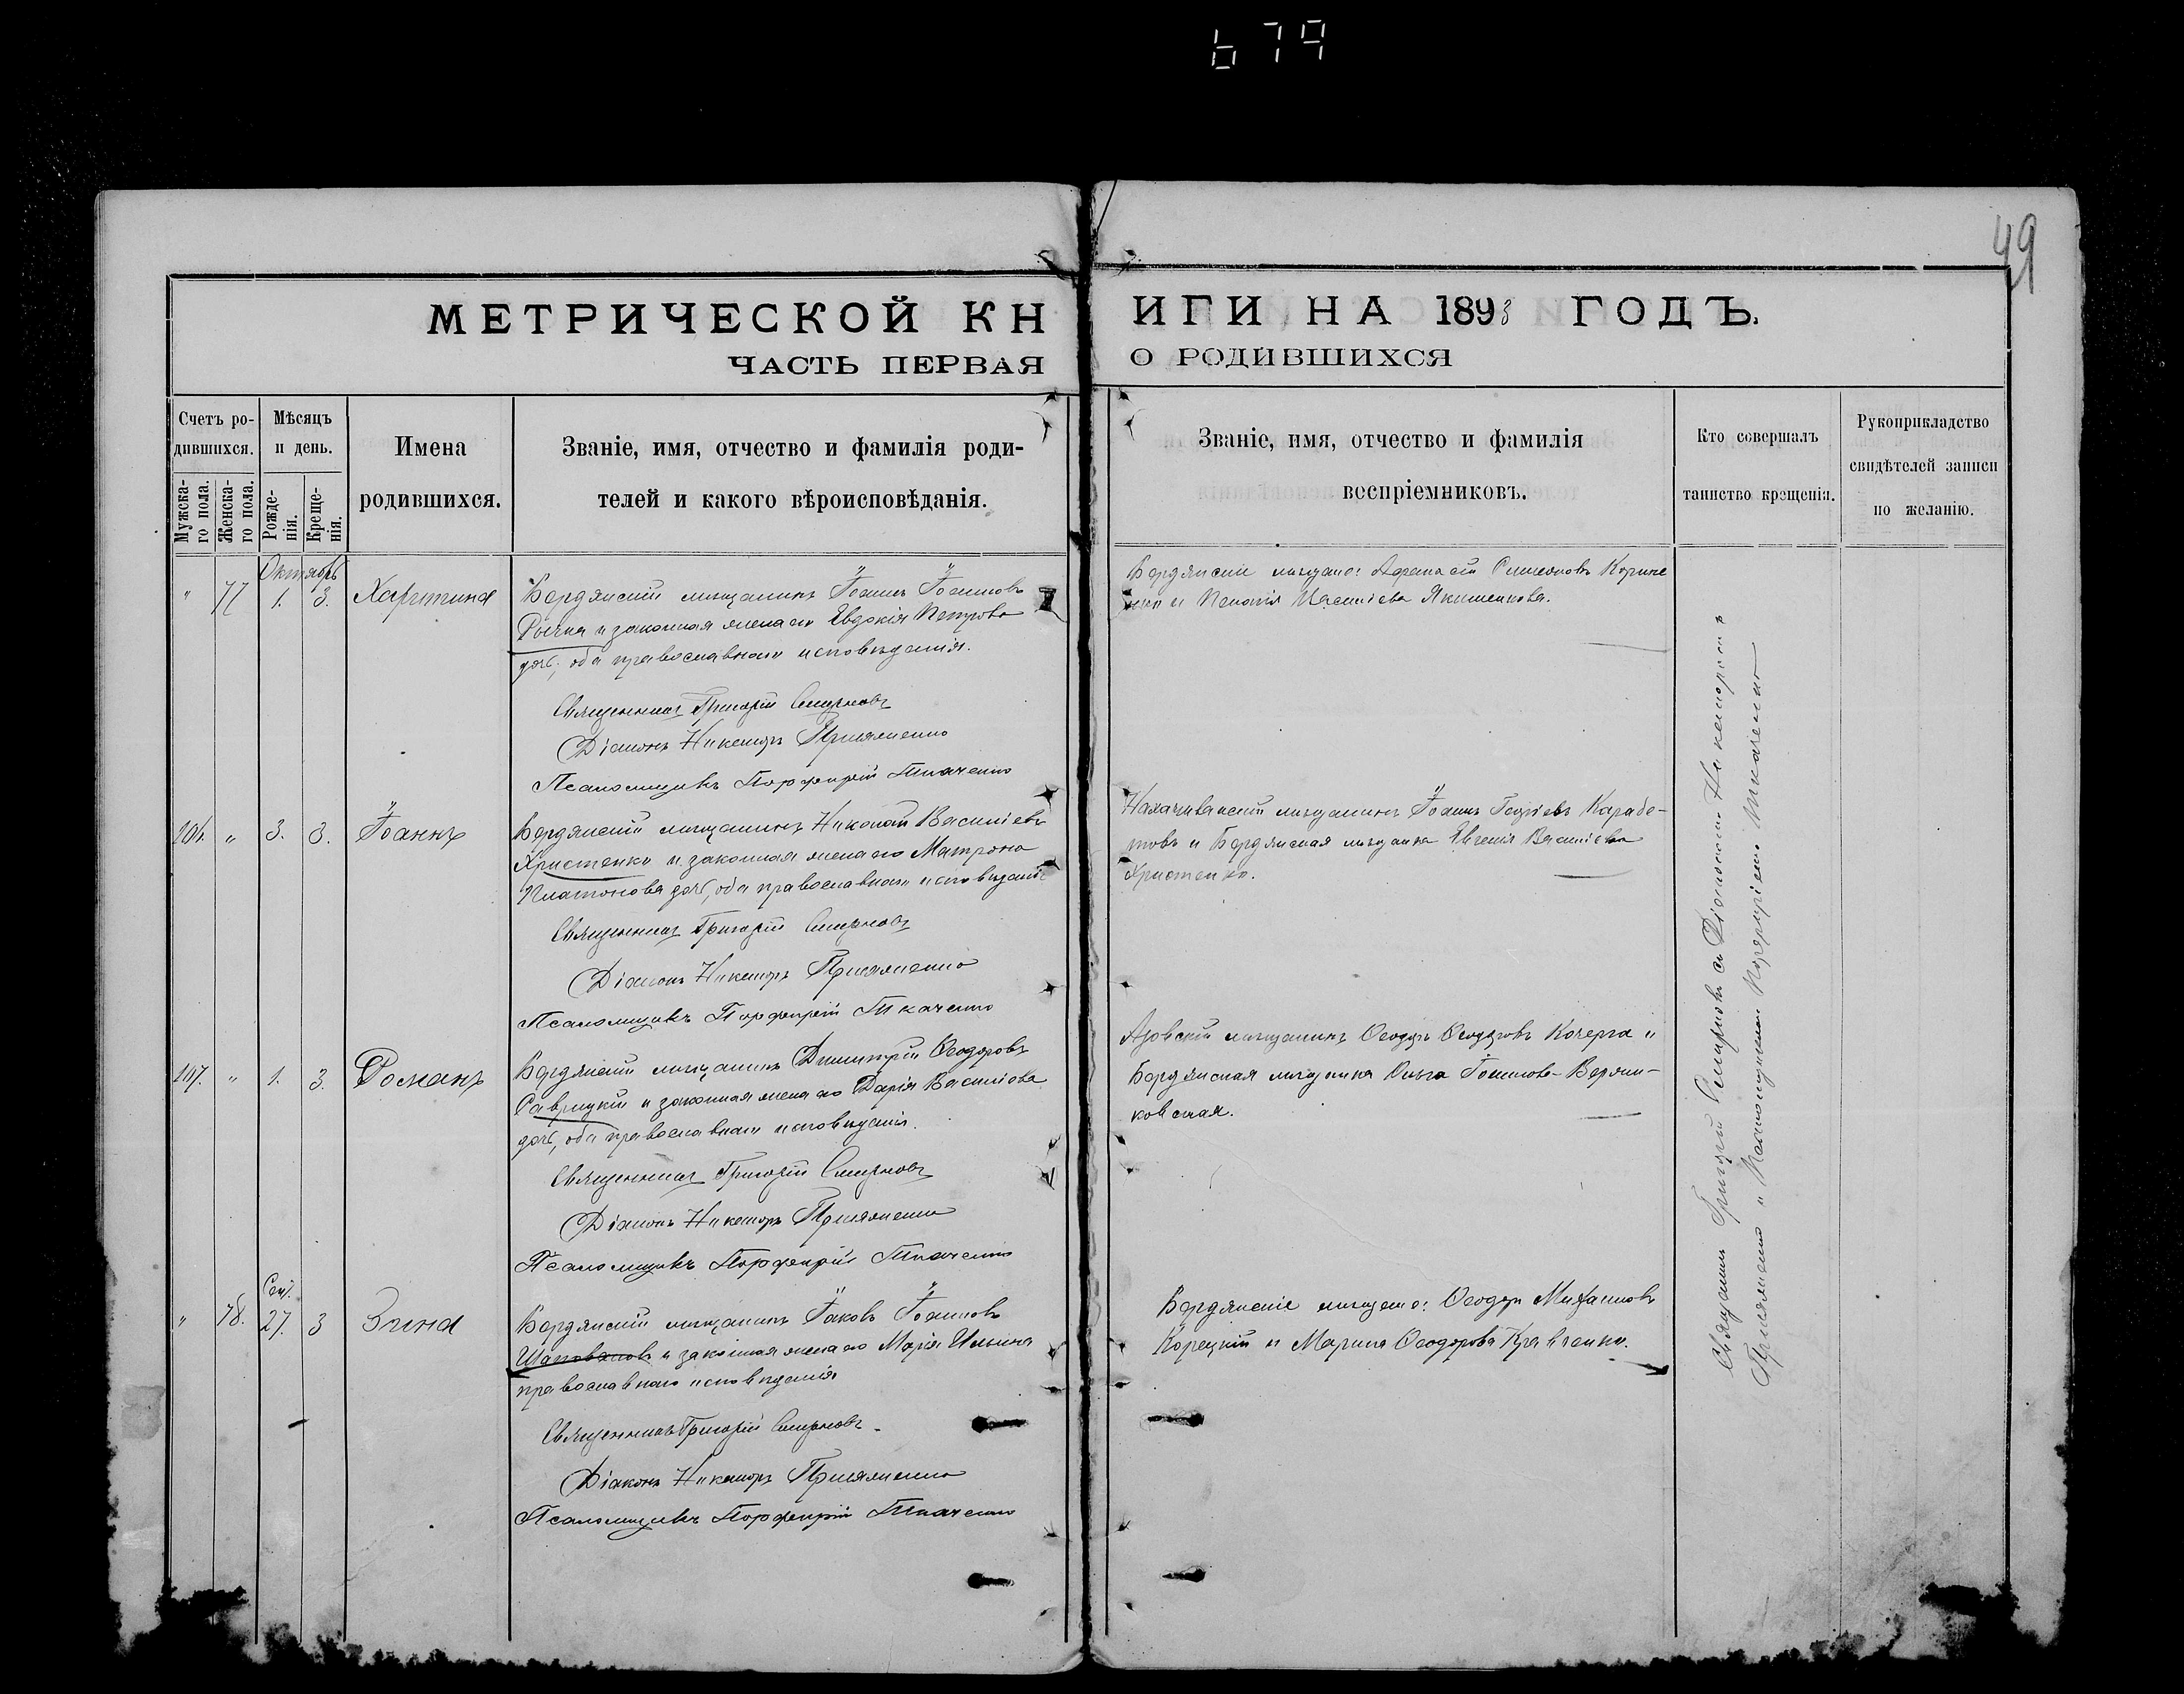 679
49
МЕТРИЧЕСКОЙ КНИГИ НА 1893 ГОДЪ.
ЧАСТЬ ПЕРВАЯ О РОДИВШИХСЯ
Счетъ родившихся.
Мужскаго пола.
Женскаго пола.
Мѣсяцъ и день.
Рожденія.
Крещенія.
Имена
родившихся.
Званіе, имя, отчество и фамилія роди-
телей и какого вѣроисповѣданія.
Званіе, имя, отчество и фамилія
воспріемниковъ.
Кто совершалъ
таинство крещенія.
Рукоприкладство
свидѣтелей записи
по желанію.
Октябрь
" 77 1. 3. Харитина
Бердянскій мѣщанинъ Іоаннъ Іоанновъ
и законная жена его Евдокія Петрова
дочь, оба православнаго исповѣданія.
Священникъ Григорій Смирновъ
Діаконъ Никаноръ Присяженко
Псаломщикъ Порфирій Ткаченко
Бердянскіе мѣщане: Афанасій Симеоновъ
и Васильева Якименкова.
106. " 3. 3. Іоаннъ
Бердянскій мѣщанинъ Николай Васильевъ
Христенко и законная жена его Матрона
Платонова дочь, оба православнаго исповѣданія
Священникъ Григорій Смирновъ
Діаконъ Никаноръ Присяженко
Псаломщикъ Порфирій Ткаченко
Нахичиванскій мѣщанинъ Іоаннъ Георгіевъ Карабе-
товъ и Бердянская мѣщанка Евгенія Васильева
Христенко.
107. " 1. 3. Романъ
Бердянскій мѣщанинъ Димитрій Ѳеодоровъ
Саврицкій и законная жена его Дарія Василіева
дочь, оба православнаго исповѣданія.
Священникъ Григорій Смирновъ
Діаконъ Никаноръ Присяженко
Псаломщикъ Порфирій Ткаченко
Азовскій мѣщанинъ Ѳеодоръ Ѳеодоровъ Кочерга и
Бердянская мѣщанка Ольга Іоаннова
ковская.
Сент.
" 78. 27. 3 Зина
Бердянскій мѣщанинъ Іаковъ Іоанновъ
Шаповаловъ и законная жена его Марія Ильина
православнаго исповѣданія
Священникъ Григорій Смирновъ.
Діаконъ Никаноръ Присяженко
Псаломщикъ Порфирій Ткаченко
Бердянскіе мѣщане: Ѳеодоръ Михаиловъ
Корецкій и Марина Ѳеодорова Кравченко.
Священникъ Григорій Смирновъ съ Діакономъ Никаноромъ
Присяженко и Псаломщикомъ Порфиріемъ Ткаченко